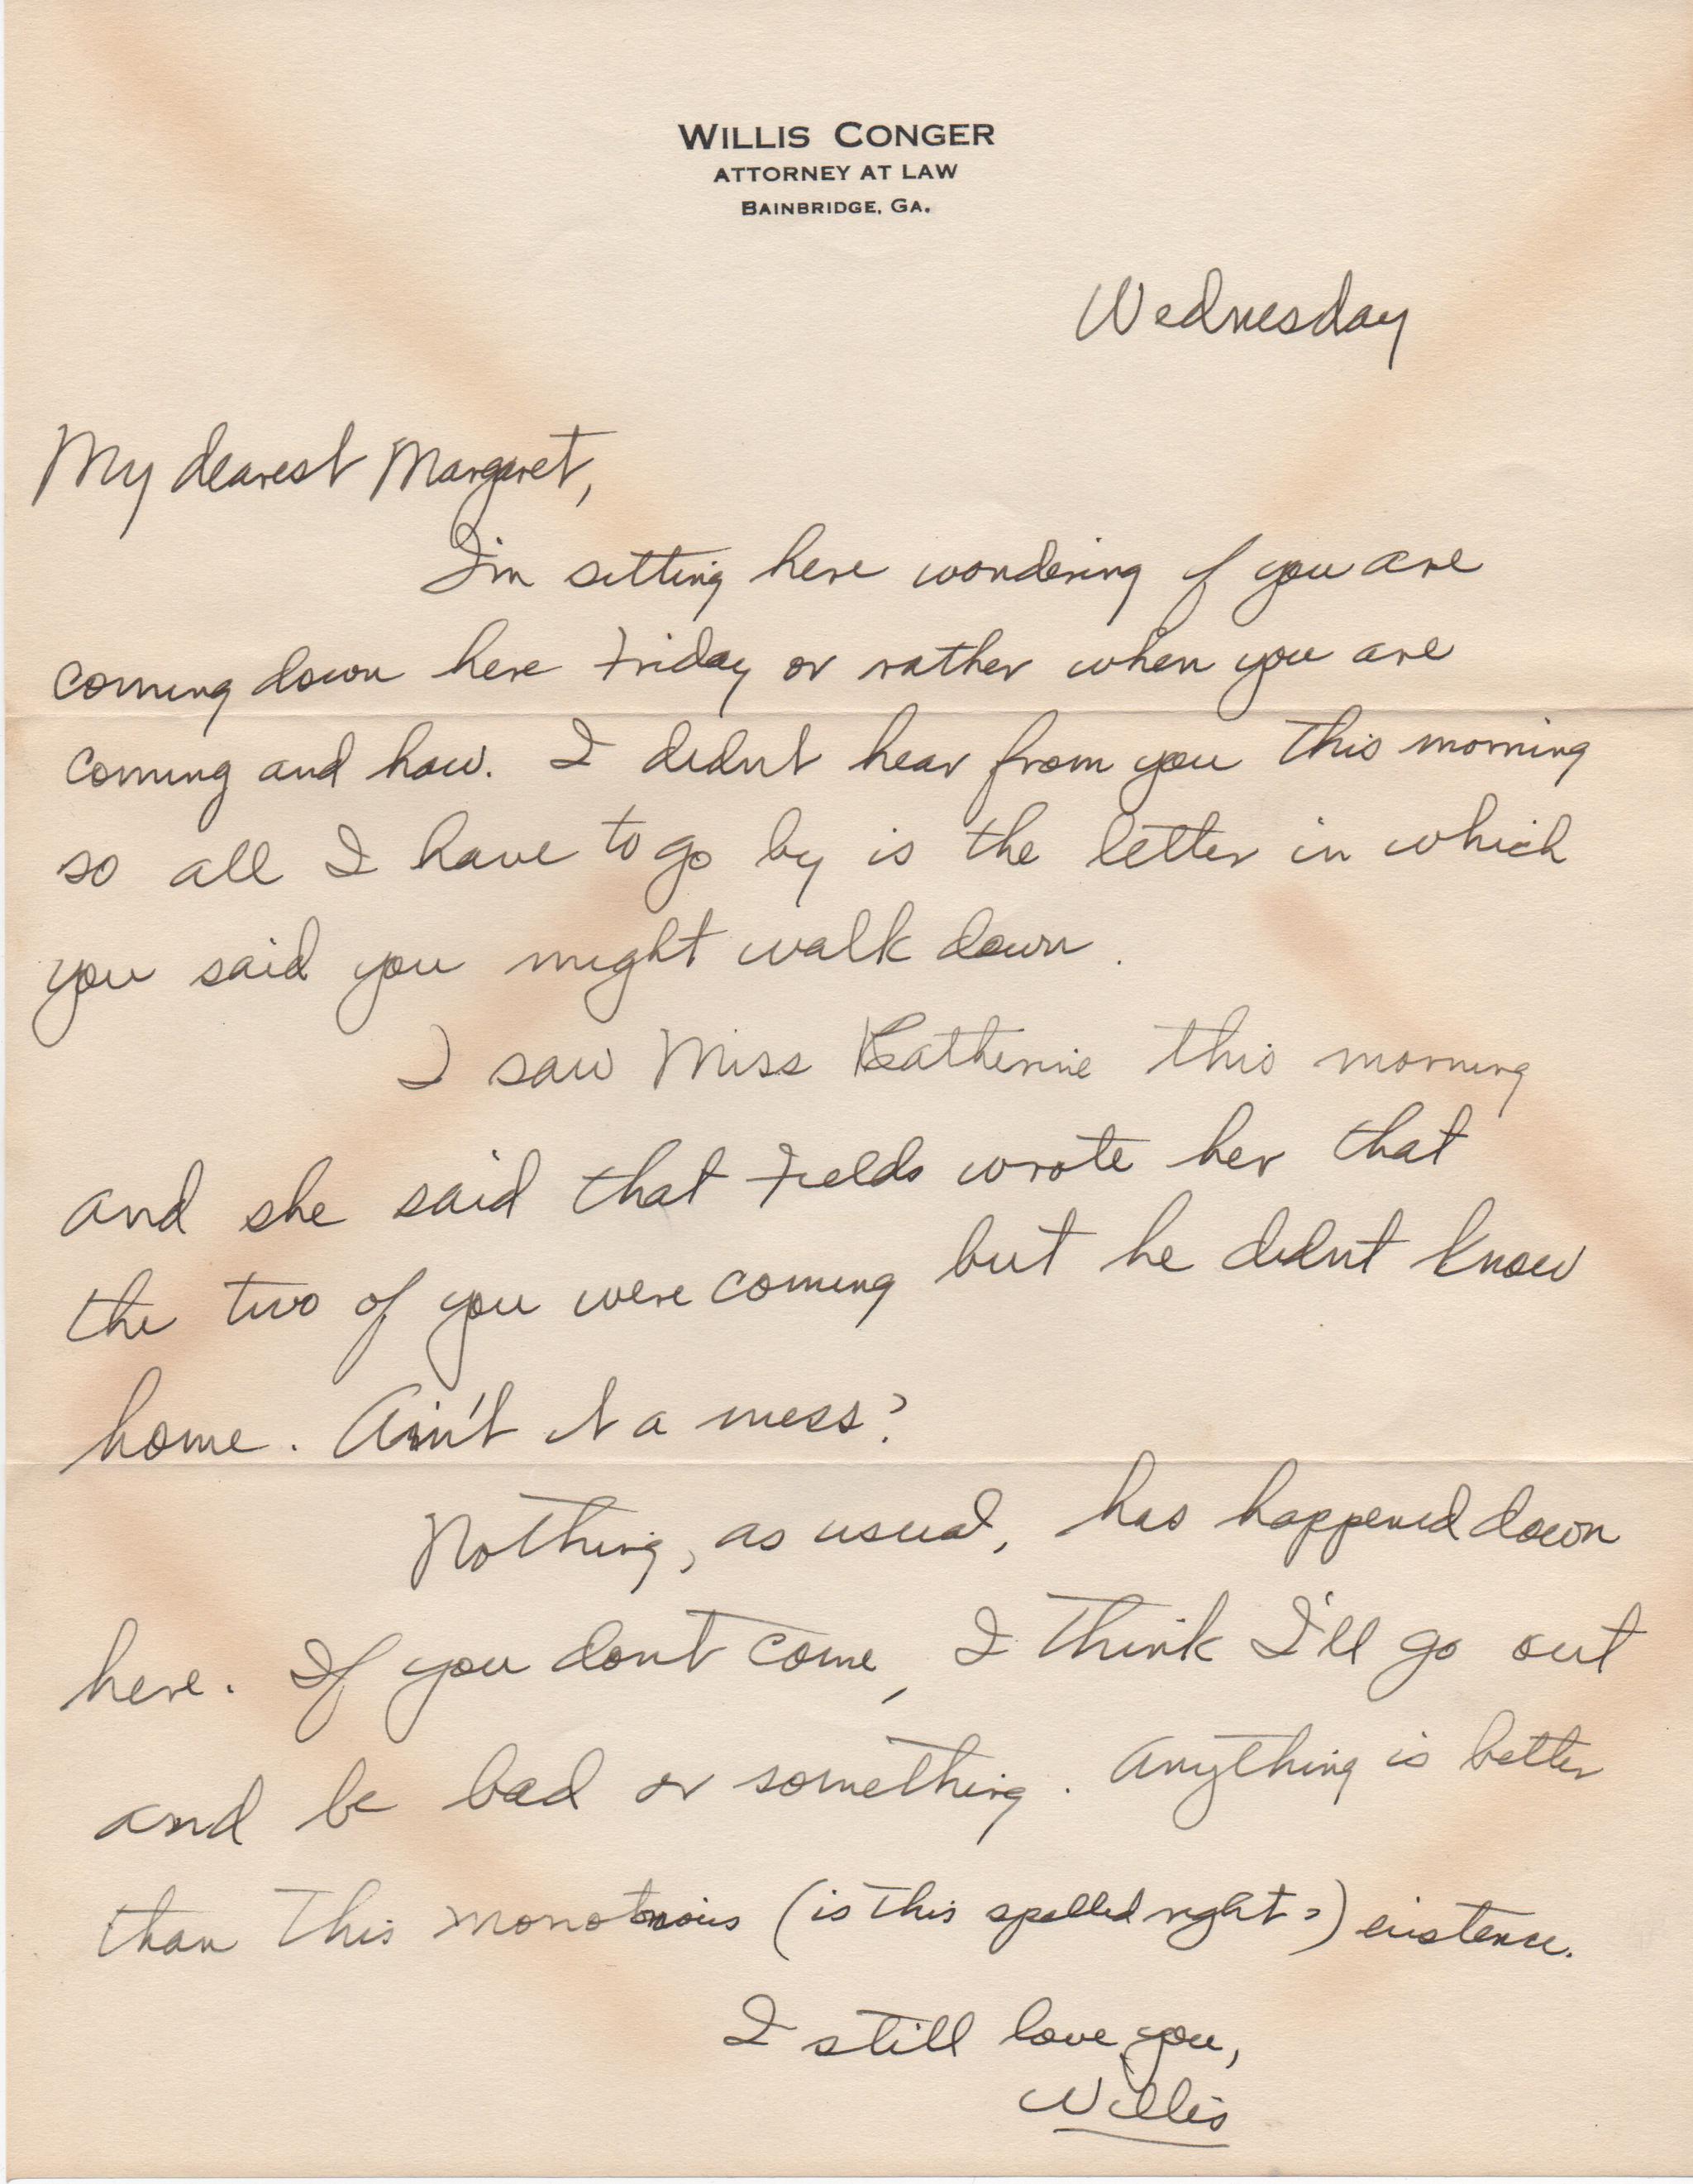 WILLIS CONGER
ATTORNEY AT LAW
BAINBRIDGE, GA.
Wednesday
My dearest Margaret,
I'm sitting here wondering if you are
coming down here Friday or rather when you are
coming and how. I didn't hear from you this morning
so all I have to go by is the letter in which
you said you might walk down.
I saw Miss Katherine this morning
and she said that Fields wrote her that
the two of you were coming but he didnt know
home. Ain't it a mess?
Nothing, as usual, has happened down
here. If you dont come, I think I'll go out
and be bad or something. Anything is better
than this monotonois (is this spelled right?) existence.
I still love you,
Willis